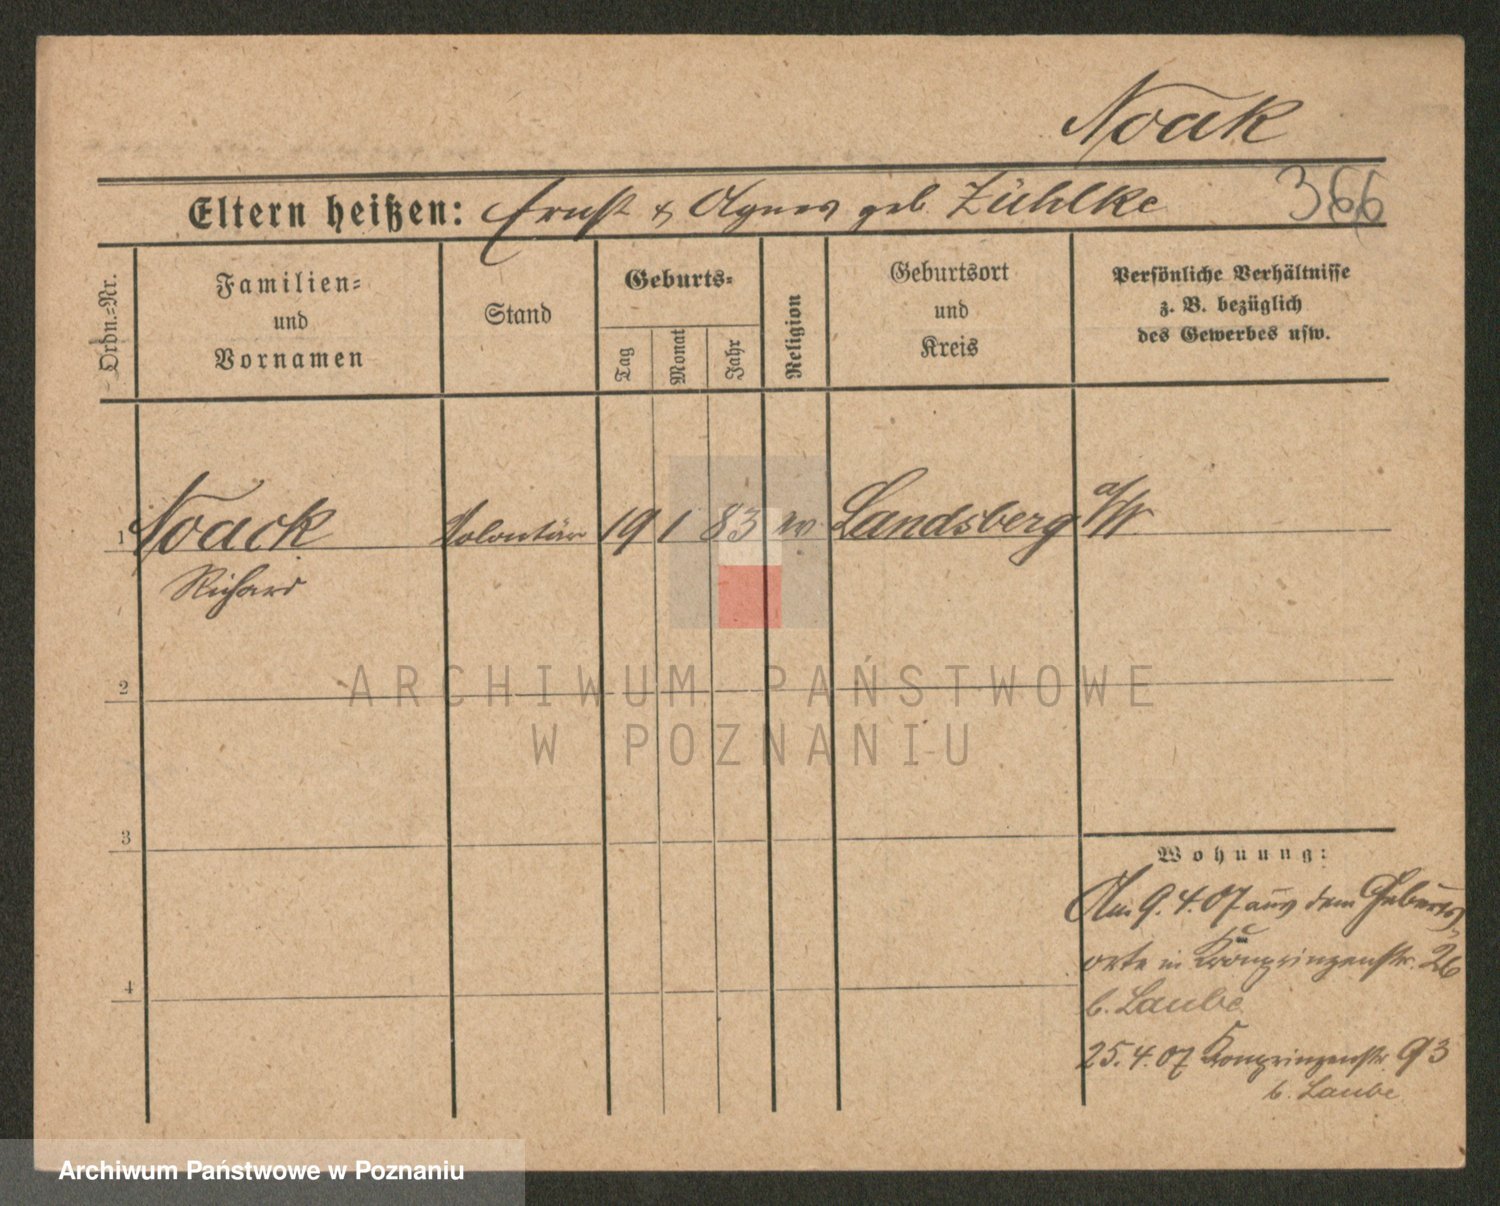 Noak
Eltern heißen: Ernst & Agnes geb. Zühlke 366
Ordn.-Nr.
Familien-
und
Vornamen
Stand
Geburts-
Tag
Monat
Jahr
Religion
Geburtsort
und
Kreis
Persönliche Verhältnisse
z. B. bezüglich
des Gewerbes usw.
1 Noack Volontär 19 1 83 ev Landsberg a/W
Richard
2
ARCHIWUM PAŃSTWOWE
W POZNANIU
3
Wohnung:
Am 9.4.07 aus dem Geburts-
orte in Kronprinzenstr. 26
b. Laube
4
25.4.07 Kronprinzenstr. 93
b. Laube
Archiwum Państwowe w Poznaniu